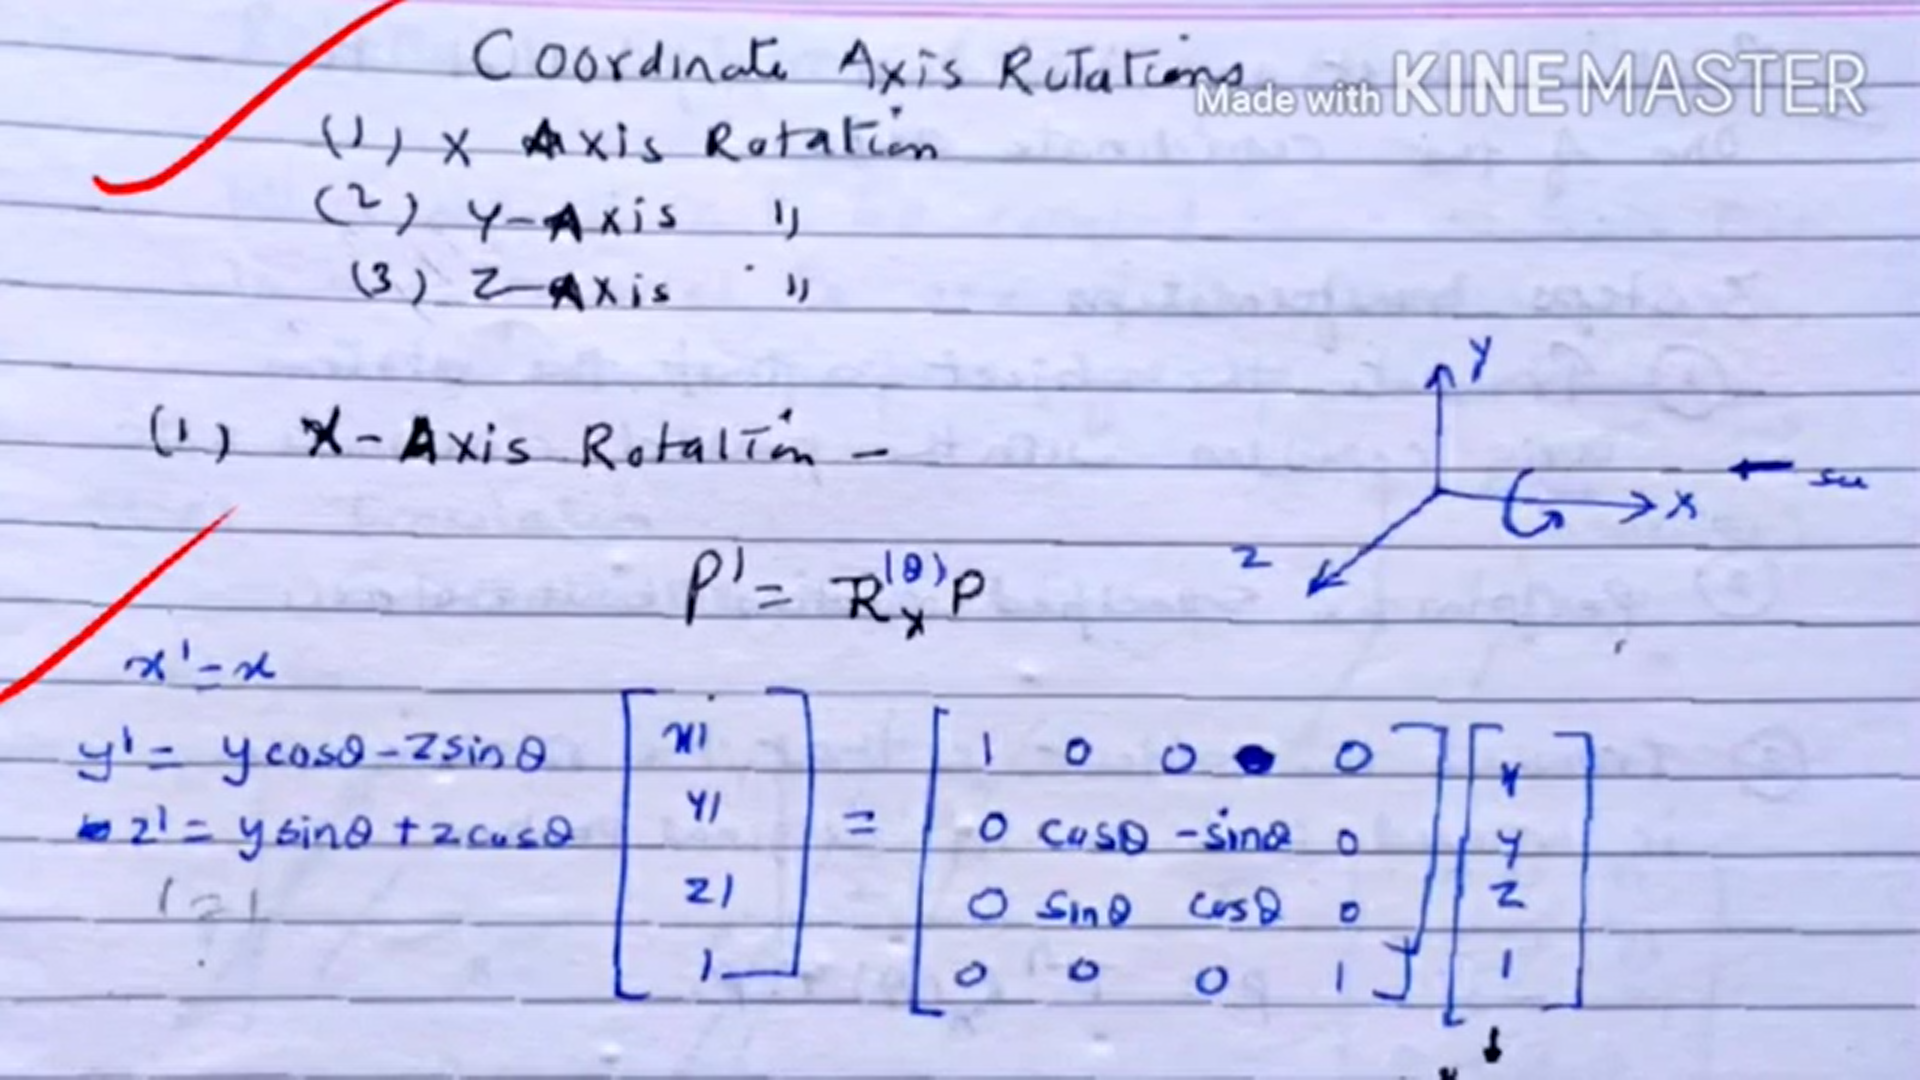 Coordinate Axis Rotations
Made with KINEMASTER
(1) X Axis Rotation
(2) Y-Axis "
(3) Z-Axis "
Y
(1) X-Axis Rotation -
X
Z
P' = Rx(θ) P
x' = x
y' = y cosθ - z sinθ
z' = y sinθ + z cosθ
[ x' ] = [ 1 0 0 0 ] [ x ]
[ y' ] [ 0 cosθ -sinθ 0 ] [ y ]
[ z' ] [ 0 sinθ cosθ 0 ] [ z ]
[ 1 ] [ 0 0 0 1 ] [ 1 ]